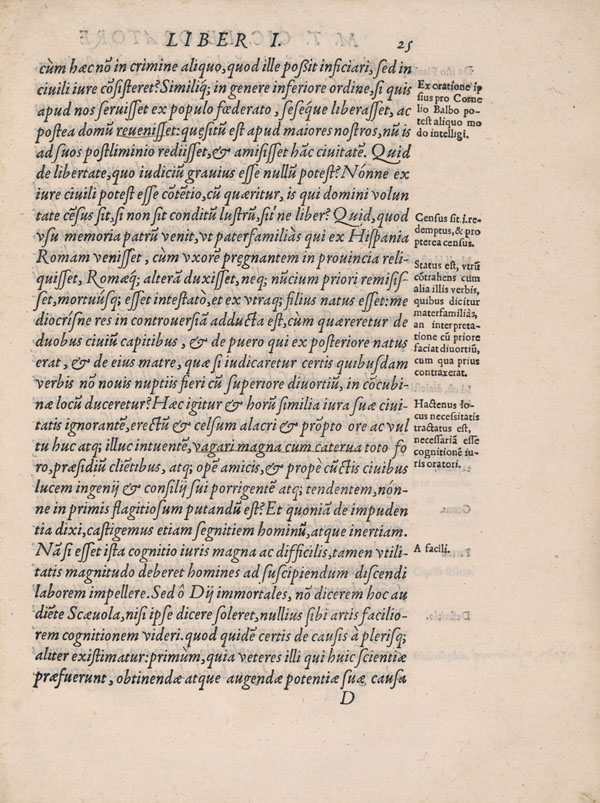 LIBER I. 25
cùm hæc nō in crimine aliquo, quod ille poßit inficiari, sed in
ciuili iure cōsisteret? Similiq́; in genere inferiore ordine, si quis
apud nos seruisset ex populo fœderato, seséque liberasset, ac
postea domū reuenisset: quesitū est apud maiores nostros, nū is
ad suos postliminio redijsset, & amisisset hāc ciuitatē. Quid
de libertate, quo iudiciū grauius esse nullū potest? Nónne ex
iure ciuili potest esse cōtētio, cū quæritur, is qui domini volun
tate cēsus sit, si non sit conditū lustrū, sit'ne liber? Quid, quod
vsu memoria patrū venit, vt paterfamiliàs qui ex Hispania
Romam venisset, cùm vxorē prægnantem in prouincia reli-
quisset, Romæq́; alterā duxisset, neq; nūcium priori remisis-
set, mortuúsq; esset intestato, et ex vtraq; filius natus esset: me
diocrisne res in controuersiā adducta est, cùm quæreretur de
duobus ciuiū capitibus, & de puero qui ex posteriore natus
erat, & de eius matre, quæ si iudicaretur certis quibusdam
verbis nō nouis nuptiis fieri cū superiore diuortiū, in cōcubi-
næ locū duceretur? Hæc igitur & horū similia iura suæ ciui-
tatis ignorantē, erectū & celsum alacri & prōpto ore ac vul
tu huc atq; illuc intuentē, vagari magna cum caterua toto fo
ro, præsidiū cliētibus, atq; opē amicis, & propè cūctis ciuibus
lucem ingenij & consilij sui porrigentē atq; tendentem, nón-
ne in primis flagitiosum putandū est? Et quoniā de impuden
tia dixi, castigemus etiam segnitiem hominū, atque inertiam.
Nā si esset ista cognitio iuris magna ac difficilis, tamen vtili-
tatis magnitudo deberet homines ad suscipiendum discendi
laborem impellere. Sed ô Dij immortales, nō dicerem hoc au
diēte Scæuola, nisi ipse dicere soleret, nullius sibi artis facilio-
rem cognitionem videri. quod quidē certis de causis à plerisq;
aliter existimatur: primùm, quia veteres illi qui huic scientiæ
præfuerunt, obtinendæ atque augendæ potentiæ suæ causa
D
Ex oratione ip
sius pro Corne
lio Balbo po-
test aliquo mo
do intelligi.
Census sit .i. re-
demptus, & pro
pterea census.
Status est, vtrū
cōtrahens cùm
alia illis verbis,
quibus dicitur
materfamiliâs,
an interpreta-
tione cū priore
faciat diuortiū,
cum qua prius
contraxerat.
Hactenus lo-
cus necessitatis
tractatus est,
necessariā esse
cognitionē iu-
ris oratori.
A facili.